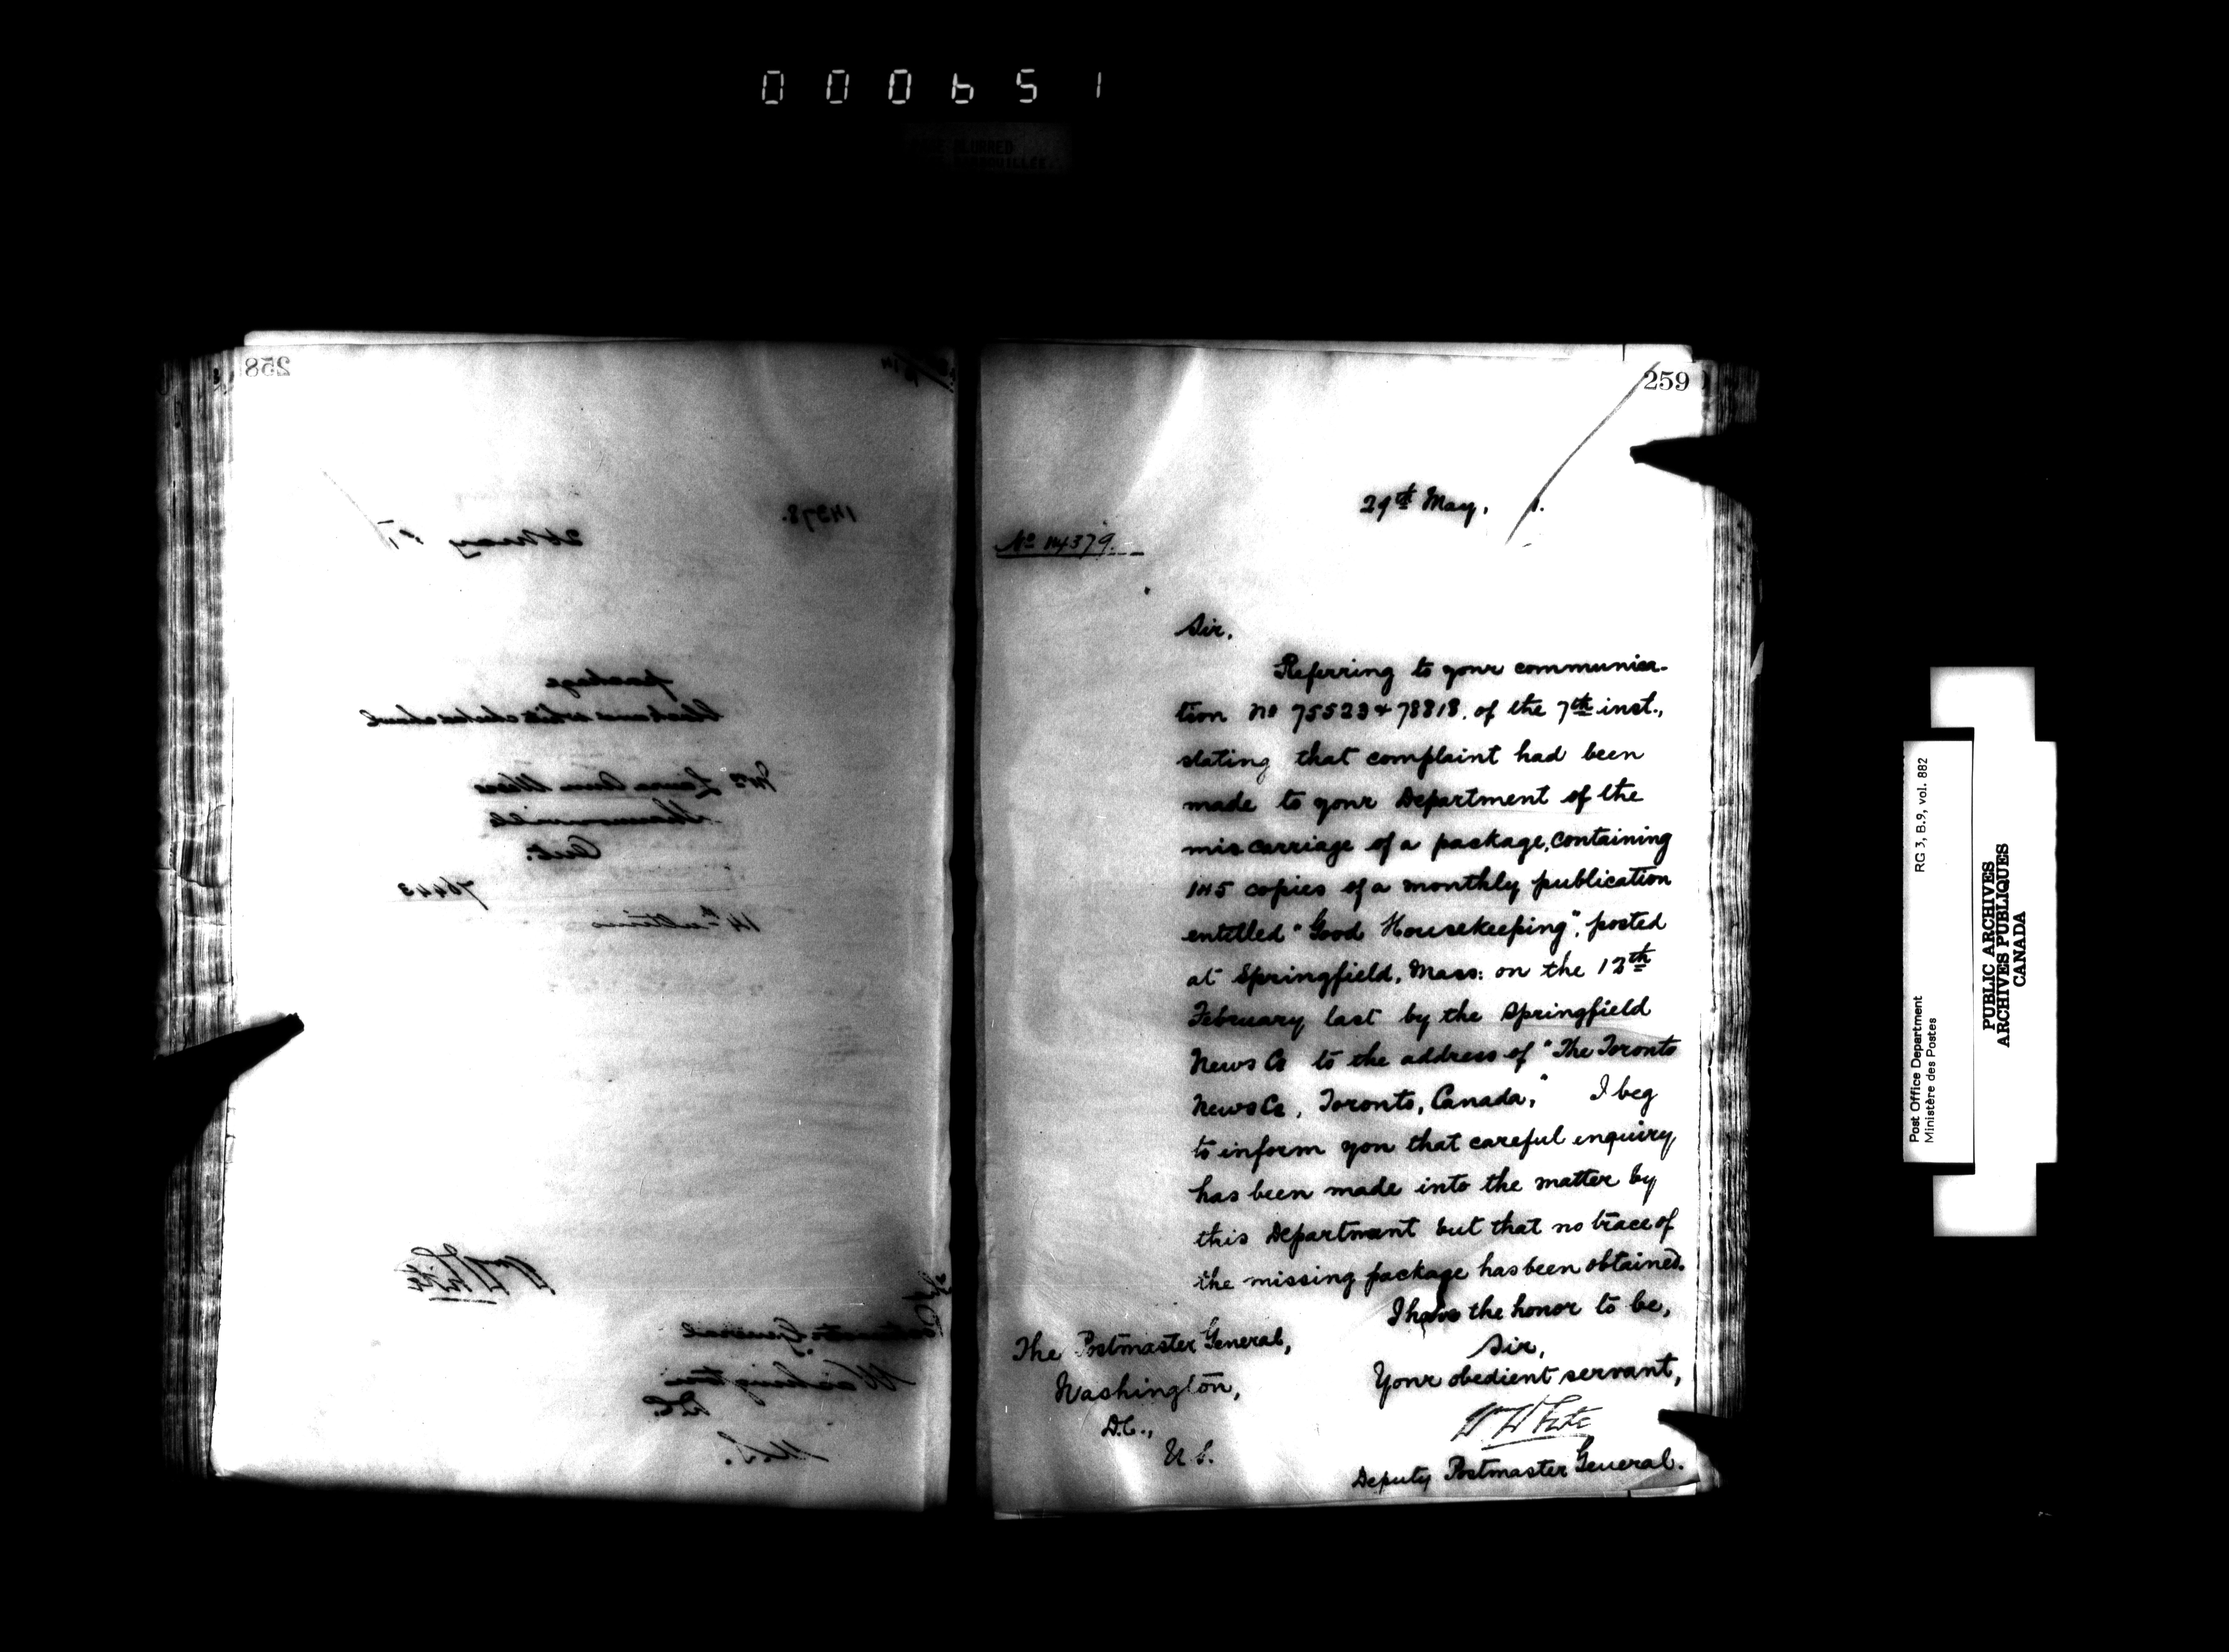 000651
BLURRED
258
14378.
26 May
package
black and white checked shawl
Mrs Laura Ann
Ont.
76443
14th ultimo
Wm White
Postmaster General
Washington
D.C.
U.S.
259
29th May, 1.
No 14379.
Sir,
Referring to your communica-
tion No 75523 & 78818, of the 7th inst.,
stating that complaint had been
made to your Department of the
miscarriage of a package, containing
145 copies of a monthly publication
entitled "Good Housekeeping", posted
at Springfield, Mass: on the 12th
February last by the Springfield
News Co to the address of "The Toronto
News Co, Toronto, Canada," I beg
to inform you that careful enquiry
has been made into the matter by
this Department but that no trace of
the missing package has been obtained.
I have the honor to be,
Sir,
Your obedient servant,
Wm White
Deputy Postmaster General.
The Postmaster General,
Washington,
D.C.,
U.S.
Post Office Department
Ministère des Postes
RG 3, B.9, vol. 882
PUBLIC ARCHIVES
ARCHIVES PUBLIQUES
CANADA